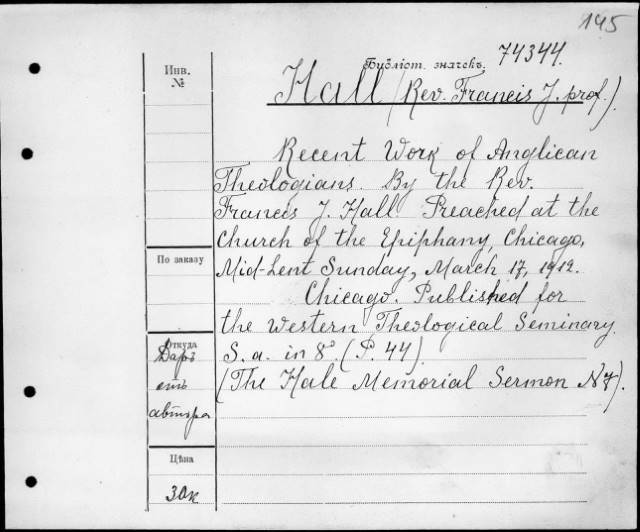 145
Библіот. значекъ. 74344.
Инв.
№
Hall (Rev. Francis J. prof.).
Recent Work of Anglican
Theologians. By the Rev.
Francis J. Hall Preached at the
Church of the Epiphany, Chicago,
Mid-Lent Sunday, March 17, 1912.
Chicago. Published for
the Western Theological Seminary.
S. a. in 8°. (P. 44).
(The Hale Memorial Sermon № 7).
По заказу
Откуда
Даръ
отъ
автора
Цѣна
30к